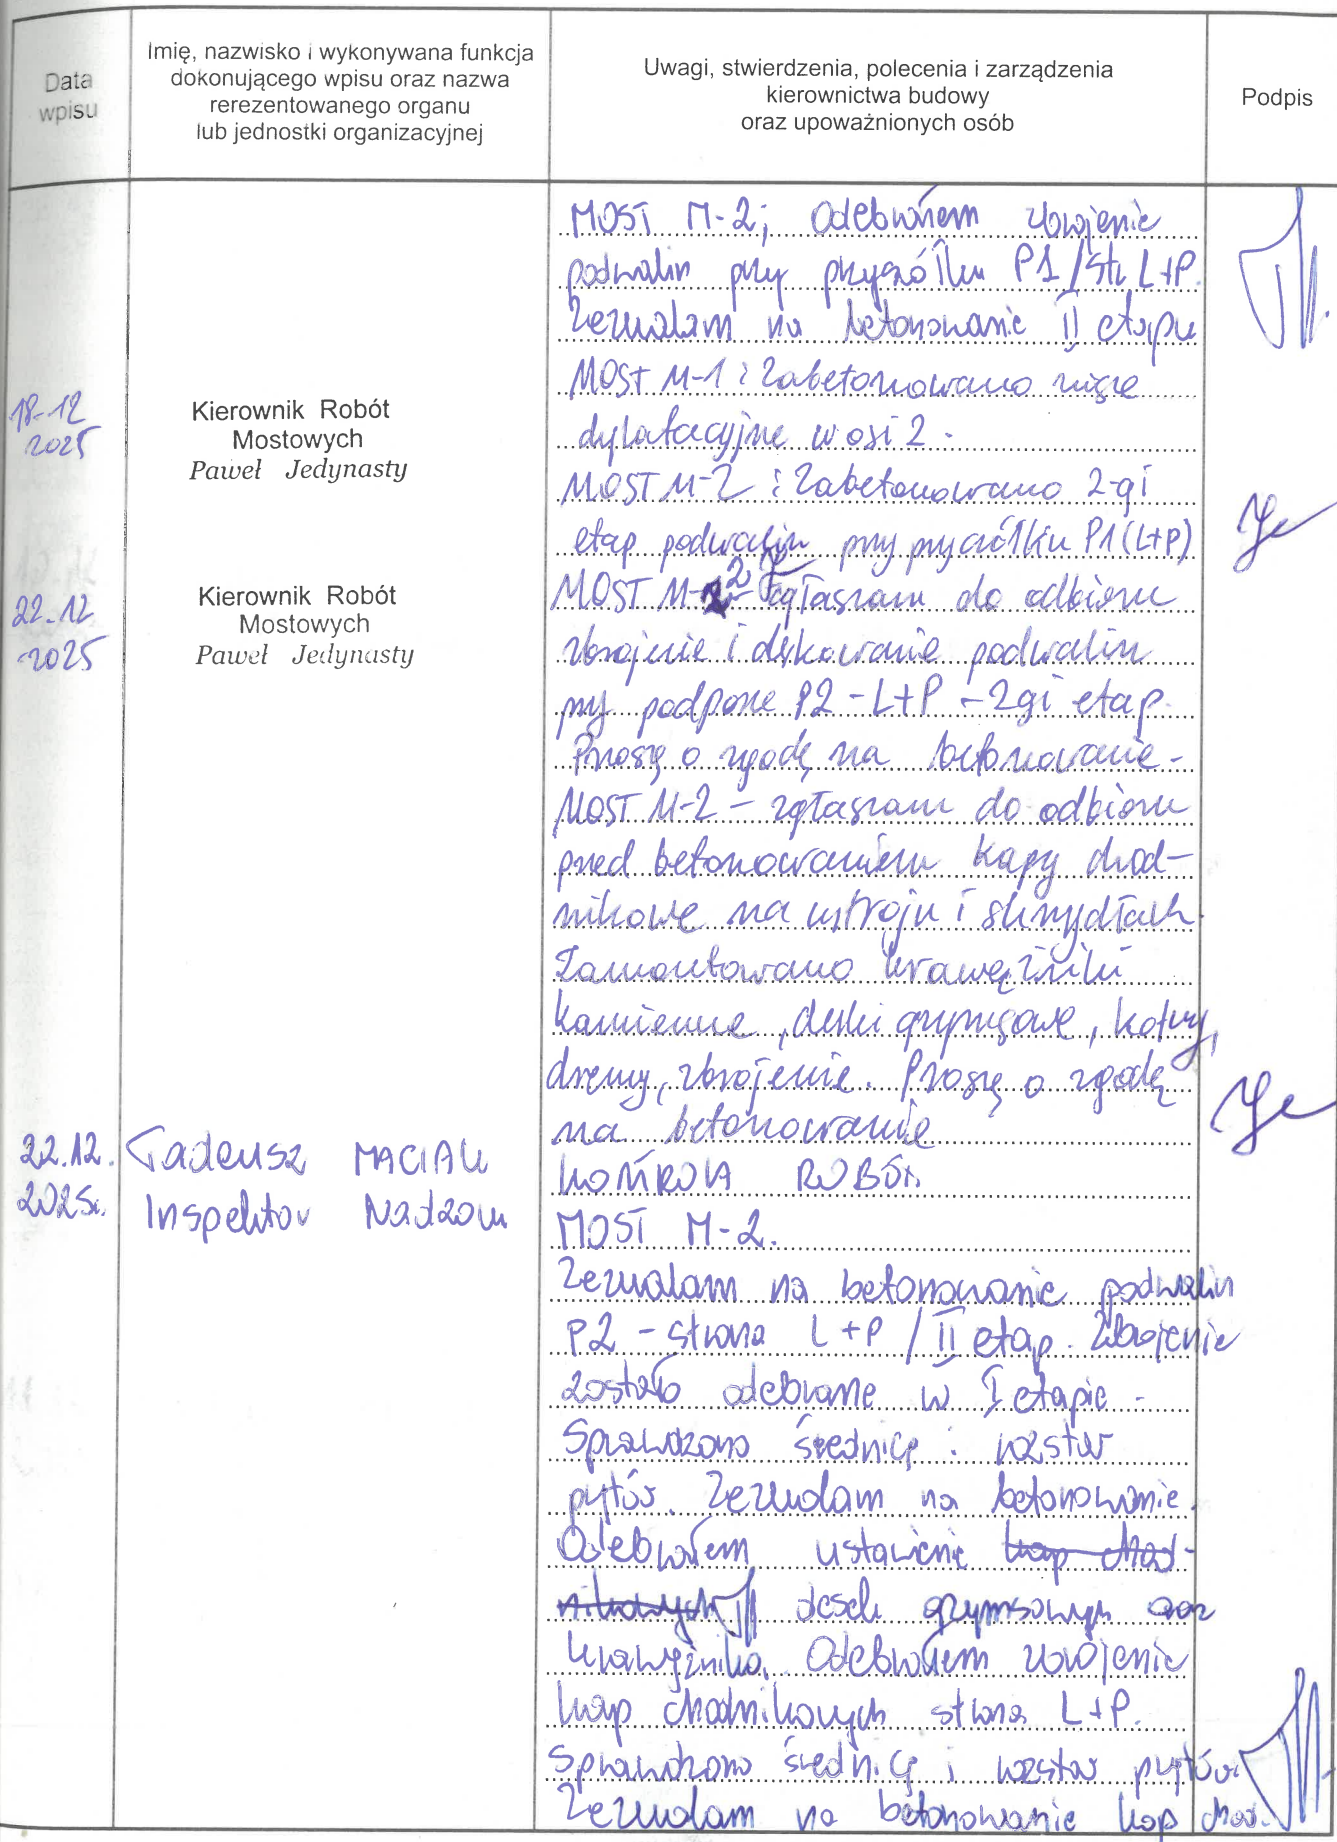 Data
wpisu
Imię, nazwisko i wykonywana funkcja
dokonującego wpisu oraz nazwa
rerezentowanego organu
lub jednostki organizacyjnej
Uwagi, stwierdzenia, polecenia i zarządzenia
kierownictwa budowy
oraz upoważnionych osób
Podpis
MOST M-2; Odebrałem zbrojenie
podwalin przy przyczółku P1/str. L+P.
Zezwalam na betonowanie II etapu
18-12
2025
Kierownik Robót
Mostowych
Paweł Jedynasty
MOST M-1 : Zabetonowano niszę
dylatacyjne w osi 2.
MOST M-2 : Zabetonowano 2-gi
etap podwalin przy przyczółku P1 (L+P)
22.12
2025
Kierownik Robót
Mostowych
Paweł Jedynasty
MOST M-2 - Zgłaszam do odbioru
zbrojenie i deskowanie podwalin
przy podporze P2 - L+P - 2gi etap.
Proszę o zgodę na betonowanie.
MOST M-2 - zgłaszam do odbioru
przed betonowaniem kapy chod-
nikowe na ustroju i skrzydłach.
Zamontowano krawężniki
kamienne, deski gzymsowe, kotwy,
dreny, zbrojenie. Proszę o zgodę
na betonowanie
22.12.
2025r.
Tadeusz MACIAK
Inspektor Nadzoru
KONTROLA ROBÓT.
MOST M-2.
Zezwalam na betonowanie podwalin
P2 - strona L+P / II etap. Zbrojenie
zostało odebrane w I etapie -
Sprawdzono średnicę i rozstaw
prętów. Zezwalam na betonowanie.
Odebrałem ustawienie kap chod-
nikowych desek gzymsowych oraz
krawężnika. Odebrałem zbrojenie
kap chodnikowych strona L+P.
Sprawdzono średnicę i rozstaw prętów.
Zezwalam na betonowanie kap chod.